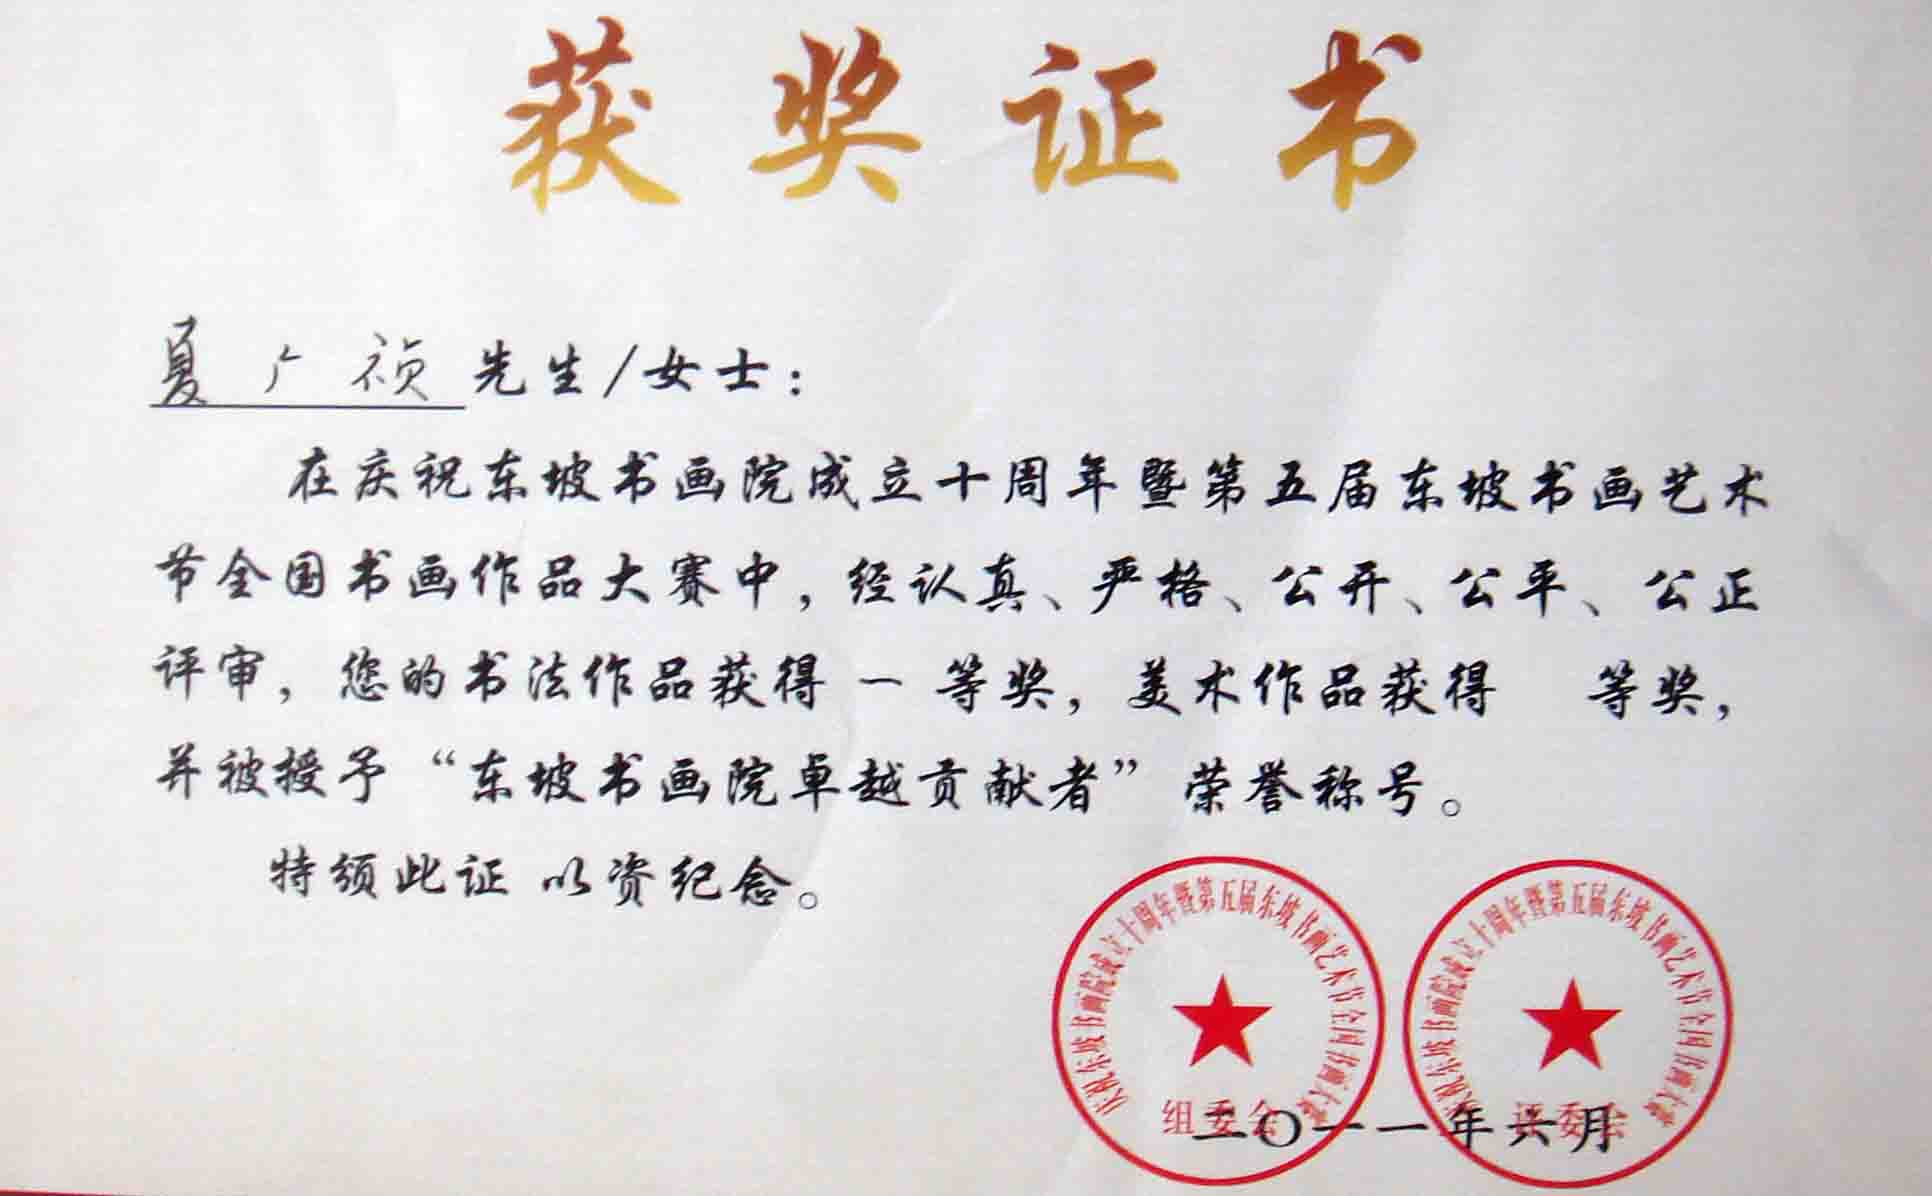 获奖证书
夏广祯先生/女士：
在庆祝东坡书画院成立十周年暨第五届东坡书画艺术
节全国书画作品大赛中，经认真、严格、公开、公平、公正
评审，您的书法作品获得 一 等奖，美术作品获得 等奖，
并被授予“东坡书画院卓越贡献者”荣誉称号。
特颁此证 以资纪念。
庆祝东坡书画院成立十周年暨第五届东坡书画艺术节全国书画大赛
组委会
庆祝东坡书画院成立十周年暨第五届东坡书画艺术节全国书画大赛
评委会
二〇一一年六月